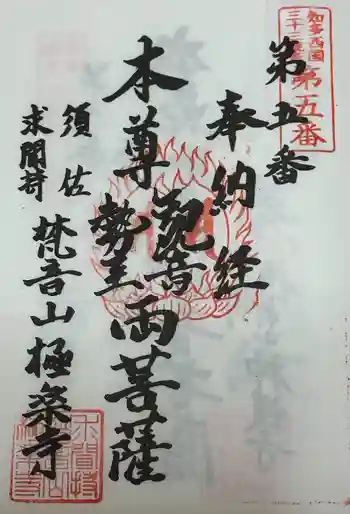 知多西国
三十三所
第五番
第五番
奉納経
本尊 観音 勢至 両菩薩
須佐
求聞持
梵音山極楽寺